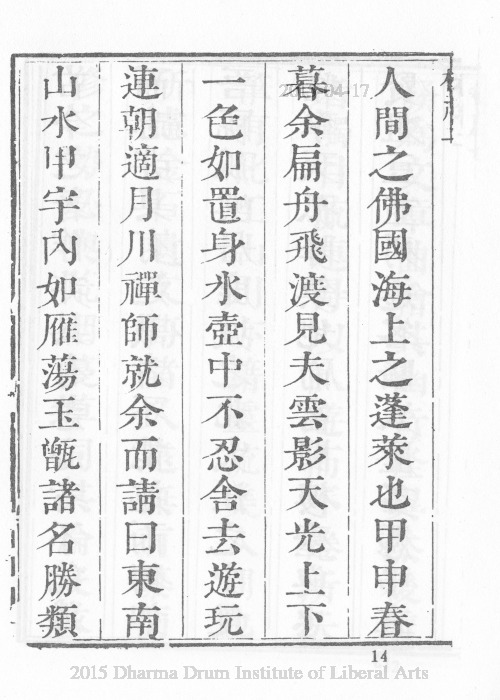 人間之佛國海上之蓬萊也甲申春
暮余扁舟飛渡見夫雲影天光上下
一色如置身氷壺中不忍舍去遊玩
連朝適月川禪師就余而請曰東南
山水甲宇內如雁蕩玉甑諸名勝類
14
2015 Dharma Drum Institute of Liberal Arts